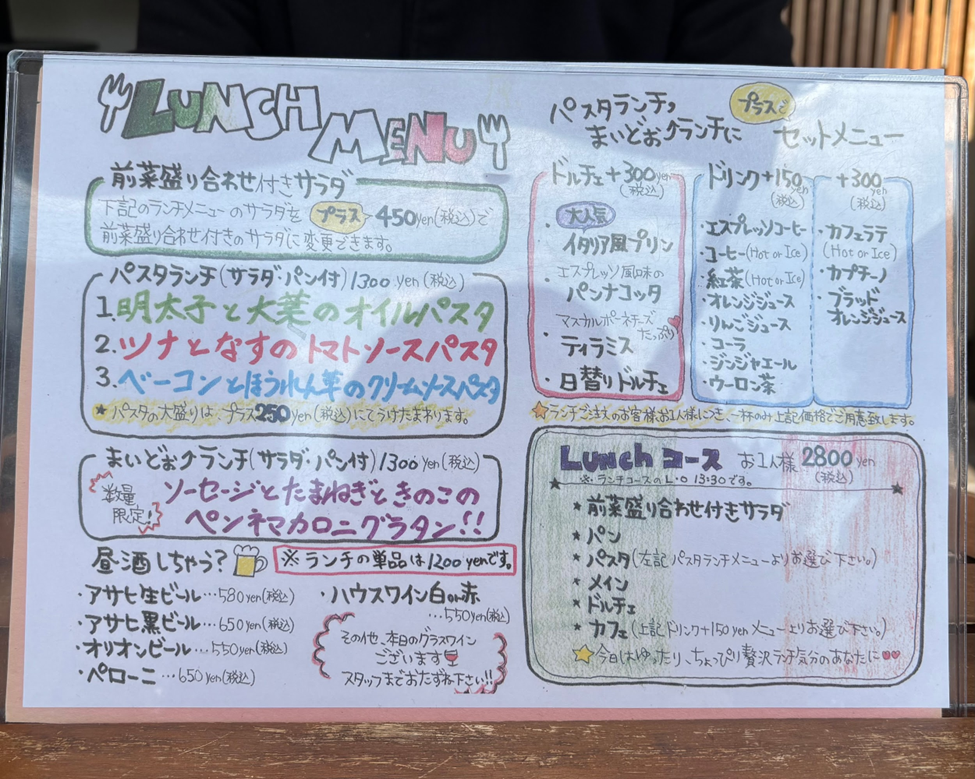 LUNCH MENU
前菜盛り合わせ付きサラダ
下記のランチメニューのサラダを プラス 450yen(税込)で
前菜盛り合わせ付きのサラダに変更できます。
パスタランチ(サラダ・パン付)1300yen(税込)
1.明太子と大葉のオイルパスタ
2.ツナとなすのトマトソースパスタ
3.ベーコンとほうれん草のクリームソースパスタ
★パスタの大盛りは、プラス250yen(税込)にてうけたまわります。
まいどおくランチ(サラダ・パン付)1300yen(税込)
数量
限定!
ソーセージとたまねぎときのこの
ペンネマカロニグラタン!!
昼酒しちゃう?
※ランチの単品は1200yenです。
・アサヒ生ビール…580yen(税込)
・アサヒ黒ビール…650yen(税込)
・オリオンビール…550yen(税込)
・ペローニ…650yen(税込)
・ハウスワイン白or赤
…550yen(税込)
その他、本日のグラスワイン
ございます
スタッフまでおたずね下さい!!
パスタランチ,
まいどおくランチに
プラスで
セットメニュー
ドルチェ+300yen
(税込)
大人気
・イタリア風プリン
・エスプレッソ風味の
パンナコッタ
・マスカルポーネチーズ
たっぷり
ティラミス
・日替りドルチェ
ドリンク+150yen
(税込)
・エスプレッソコーヒー
・コーヒー(Hot or Ice)
・紅茶(Hot or Ice)
・オレンジジュース
・りんごジュース
・コーラ
・ジンジャエール
・ウーロン茶
+300yen
(税込)
・カフェラテ
(Hot or Ice)
・カプチーノ
・ブラッド
オレンジジュース
☆ランチご注文のお客様お1人様につき、一杯のみ上記価格でご用意致します。
Lunchコース お1人様 2800yen
(税込)
※ランチコースのL・O 13:30です。
★前菜盛り合わせ付きサラダ
★パン
★パスタ(左記パスタランチメニューよりお選び下さい)
★メイン
★ドルチェ
★カフェ(上記ドリンク+150yenメニューよりお選び下さい。)
☆今日はゆったり、ちょっぴり贅沢ランチ気分のあなたに